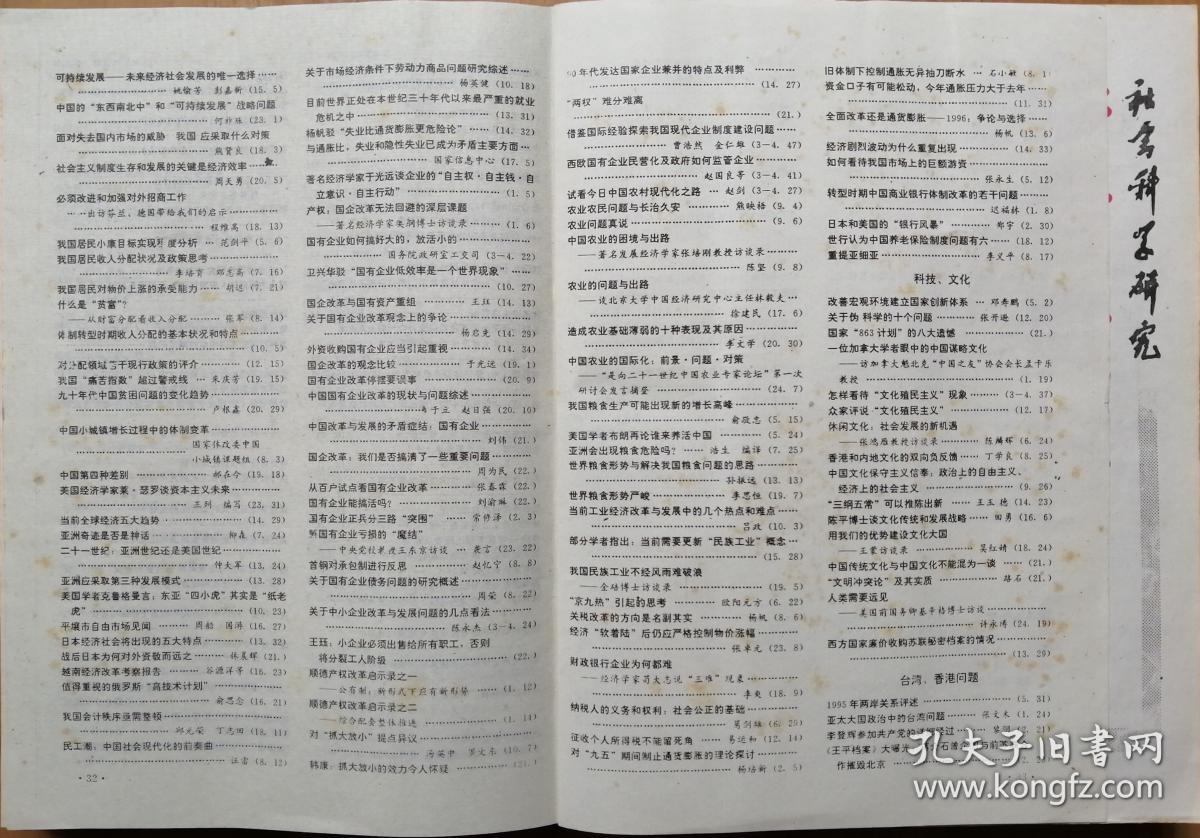 可持续发展——未来经济社会发展的唯一选择……
姚愉芳 彭嘉新 (15. 5)
中国的“东西南北中”和“可持续发展”战略问题
何祚庥 (23. 1)
面对失去国内市场的威胁 我国应采取什么对策
熊贤良 (18. 3)
社会主义制度生存和发展的关键是经济效率……
周天勇 (20. 5)
必须改进和加强对外招商工作
——出访芬兰、德国带给我们的启示……
程维高 (18. 13)
我国居民小康目标实现程度分析 … 范剑平 (5. 6)
我国居民收入分配状况及政策思考……
李培育 邓志高 (7. 16)
我国居民对物价上涨的承受能力…… 胡远 (7. 21)
什么是“贫富”？
——从财富分配看收入分配…… 张军 (8. 14)
体制转型时期收入分配的基本状况和特点……
(10. 5)
对分配领域若干现行政策的评介…… (12. 15)
我国“痛苦指数”超过警戒线 … 朱庆芳 (19. 15)
九十年代中国贫困问题的变化趋势……
卢根鑫 (20. 29)
中国小城镇增长过程中的体制变革……
国家体改委中国
小城镇课题组 (8. 3)
中国第四种差别…… 郝在今 (19. 18)
美国经济学家莱·瑟罗谈资本主义未来……
王列 编写 (23. 31)
当前全球经济五大趋势…… (14. 29)
亚洲奇迹是否是神话…… 柳森 (7. 24)
二十一世纪：亚洲世纪还是美国世纪……
仲大军 (13. 24)
亚洲应采取第三种发展模式…… (13. 28)
美国学者克鲁格曼言：东亚“四小虎”其实是“纸老
虎”…… (10. 23)
平壤市自由市场见闻…… 周船 国游 (16. 27)
日本经济社会将出现的五大特点…… (13. 32)
战后日本为何对外资敬而远之…… 林晨辉 (21.)
越南经济改革考察报告…… 谷源洋等 (16. 23)
值得重视的俄罗斯“高技术计划”……
俞思念 (16. 21)
我国会计秩序亟需整顿……
邱元荣 丁志田 (18. 11)
民工潮：中国社会现代化的前奏曲……
汪雷 (8. 12)
·32·
关于市场经济条件下劳动力商品问题研究综述……
杨英健 (10. 18)
目前世界正处在本世纪三十年代以来最严重的就业
危机之中…… (13. 31)
杨帆驳“失业比通货膨胀更危险论”…… (14. 32)
与通胀比，失业和隐性失业已成为矛盾主要方面……
国家信息中心 (17. 5)
著名经济学家于光远谈企业的“自主权·自主钱·自
立意识·自主行动”…… (1. 5)
产权：国企改革无法回避的深层课题
——著名经济学家吴纲博士访谈录…… (1. 6)
国有企业如何搞好大的，放活小的……
国务院政研室工交司 (3—4. 22)
卫兴华驳“国有企业低效率是一个世界现象”……
(10. 27)
国企改革与国有资产重组…… 王珏 (14. 13)
关于国有企业改革观念上的争论……
杨启先 (14. 29)
外资收购国有企业应当引起重视…… (14. 34)
国企改革的观念比较…… 于光远 (19. 1)
国有企业改革停摆要误事…… (20. 9)
中国国有企业改革的现状与问题综述……
肖于立 赵日强 (20. 10)
中国改革与发展的矛盾症结：国有企业……
刘伟 (21.)
国企改革：我们是否搞清了一些重要问题……
周为民 (22.)
从百户试点看国有企业改革…… 张春霖 (22.)
国有企业能搞活吗？…… 刘渝琳 (22.)
国有企业正兵分三路“突围”…… 常修泽 (2. 3)
解国有企业亏损的“魔结”
——中央党校教授王东京访谈…… 袭言 (23. 22)
首钢对承包制进行反思…… 赵忆宁 (8. 8)
关于国有企业债务问题的研究概述……
周荣 (8. 22)
关于中小企业改革与发展问题的几点看法……
陈永杰 (3—4. 24)
王珏：小企业必须出售给所有职工，否则
将分裂工人阶级…… (22.)
顺德产权改革启示录之一
——公有制：新形式下应有新形势…… (1. 12)
顺德产权改革启示录之二
——综合配套整体推进…… (1. 14)
对“抓大放小”提点异议……
汤英中 罗文东 (10. 7)
韩康：抓大放小的效力令人怀疑……
90年代发达国家企业兼并的特点及利弊……
(14. 27)
“两权”难分难离
(21.)
借鉴国际经验探索我国现代企业制度建设问题……
曹浩然 金仁雄 (3—4. 47)
西欧国有企业民营化及政府如何监管企业……
赵国良等 (3—4. 41)
试看今日中国农村现代化之路…… 赵剑 (3—4. 27)
农业农民问题与长治久安…… 熊映梧 (9. 4)
农业问题真说…… (9. 6)
中国农业的困境与出路
——著名发展经济学家张培刚教授访谈录……
陈坚 (9. 8)
农业的问题与出路
——谈北京大学中国经济研究中心主任林毅夫…
徐建民 (17. 6)
造成农业基础薄弱的十种表现及其原因……
李文学 (20. 30)
中国农业的国际化：前景·问题·对策
——“是向二十一世纪中国农业专家论坛”第一次
研讨会发言摘登…… (24. 7)
我国粮食生产可能出现新的增长高峰……
俞敬忠 (5. 15)
美国学者布朗再论谁来养活中国…… (5. 24)
亚洲会出现粮食危险吗？… 浩生 编译 (7. 25)
世界粮食形势与解决我国粮食问题的思路……
孙振远 (13. 13)
世界粮食形势严峻…… 李思恒 (19. 7)
当前工业经济改革与发展中的几个热点和难点……
吕政 (10. 3)
部分学者指出：当前需要更新“民族工业”概念……
(15. 28)
我国民族工业不经风雨难破浪
——金碚博士访谈录…… (19. 5)
“京九热”引起的思考…… 欧阳元方 (6. 22)
关税改革的方向是名副其实…… 杨帆 (8. 6)
经济“软着陆”后仍应严格控制物价涨幅……
张卓元 (23. 8)
财政银行企业为何都难
——经济学家苟大志说“三难”现象……
李爽 (18. 9)
纳税人的义务和权利：社会公正的基础……
葛剑雄 (6. 29)
征收个人所得税不能留死角…… 易运和 (12. 14)
对“九五”期间制止通货膨胀的理论探讨……
杨培新 (2. 5)
旧体制下控制通胀无异抽刀断水…… 石小敏 (8. 1)
资金口子有可能松动，今年通胀压力大于去年……
(11. 31)
全面改革还是通货膨胀——1996：争论与选择……
杨帆 (13. 6)
经济剧烈波动为什么重复出现…… (14. 33)
如何看待我国市场上的巨额游资……
张永生 (5. 12)
转型时期中国商业银行体制改革的若干问题……
迟福林 (1. 8)
日本和美国的“银行风暴”…… 郑宇 (2. 30)
世行认为中国养老保险制度问题有六…… (18. 12)
重提亚细亚…… 李义平 (8. 17)
科技、文化
改善宏观环境建立国家创新体系… 邓寿鹏 (5. 2)
关于伪科学的十个问题…… 张开逊 (12. 20)
国家“863计划”的八大遗憾…… (21.)
一位加拿大学者眼中的中国谋略文化
——访加拿大魁北克“中国之友”协会会长孟于乐
教授…… (1. 19)
怎样看待“文化殖民主义”现象…… (3—4. 37)
众家评说“文化殖民主义”…… (12. 17)
休闲文化：社会发展的新机遇
——张鸿雁教授访谈录…… 陈麟辉 (6. 24)
香港和内地文化的双向负反馈…… 丁学良 (8. 25)
中国文化保守主义信奉：政治上的自由主义、
经济上的社会主义…… (9. 26)
“三纲五常”可以推陈出新…… 王玉德 (14. 23)
陈平博士谈文化传统和发展战略…… 田勇 (16. 6)
用我们的优势建设文化大国
——王蒙访谈录…… 吴红婧 (18. 24)
中国传统文化与中国文化不能混为一谈…… (21.)
“文明冲突论”及其实质…… 路石 (21.)
人类需要远见
——美国前国务卿基辛格博士访谈……
许永涛 (24. 19)
西方国家廉价收购苏联秘密档案的情况……
(13. 29)
台湾、香港问题
1995年两岸关系评述…… (5. 31)
亚太大国政治中的台湾问题…… 张文木 (1. 24)
李登辉参加共产党的详细经过…… (1. 21)
《王平档案》大曝光
作摧毁北京…… (2. 25)
社会科学研究
孔夫子旧书网
www.kongfz.com